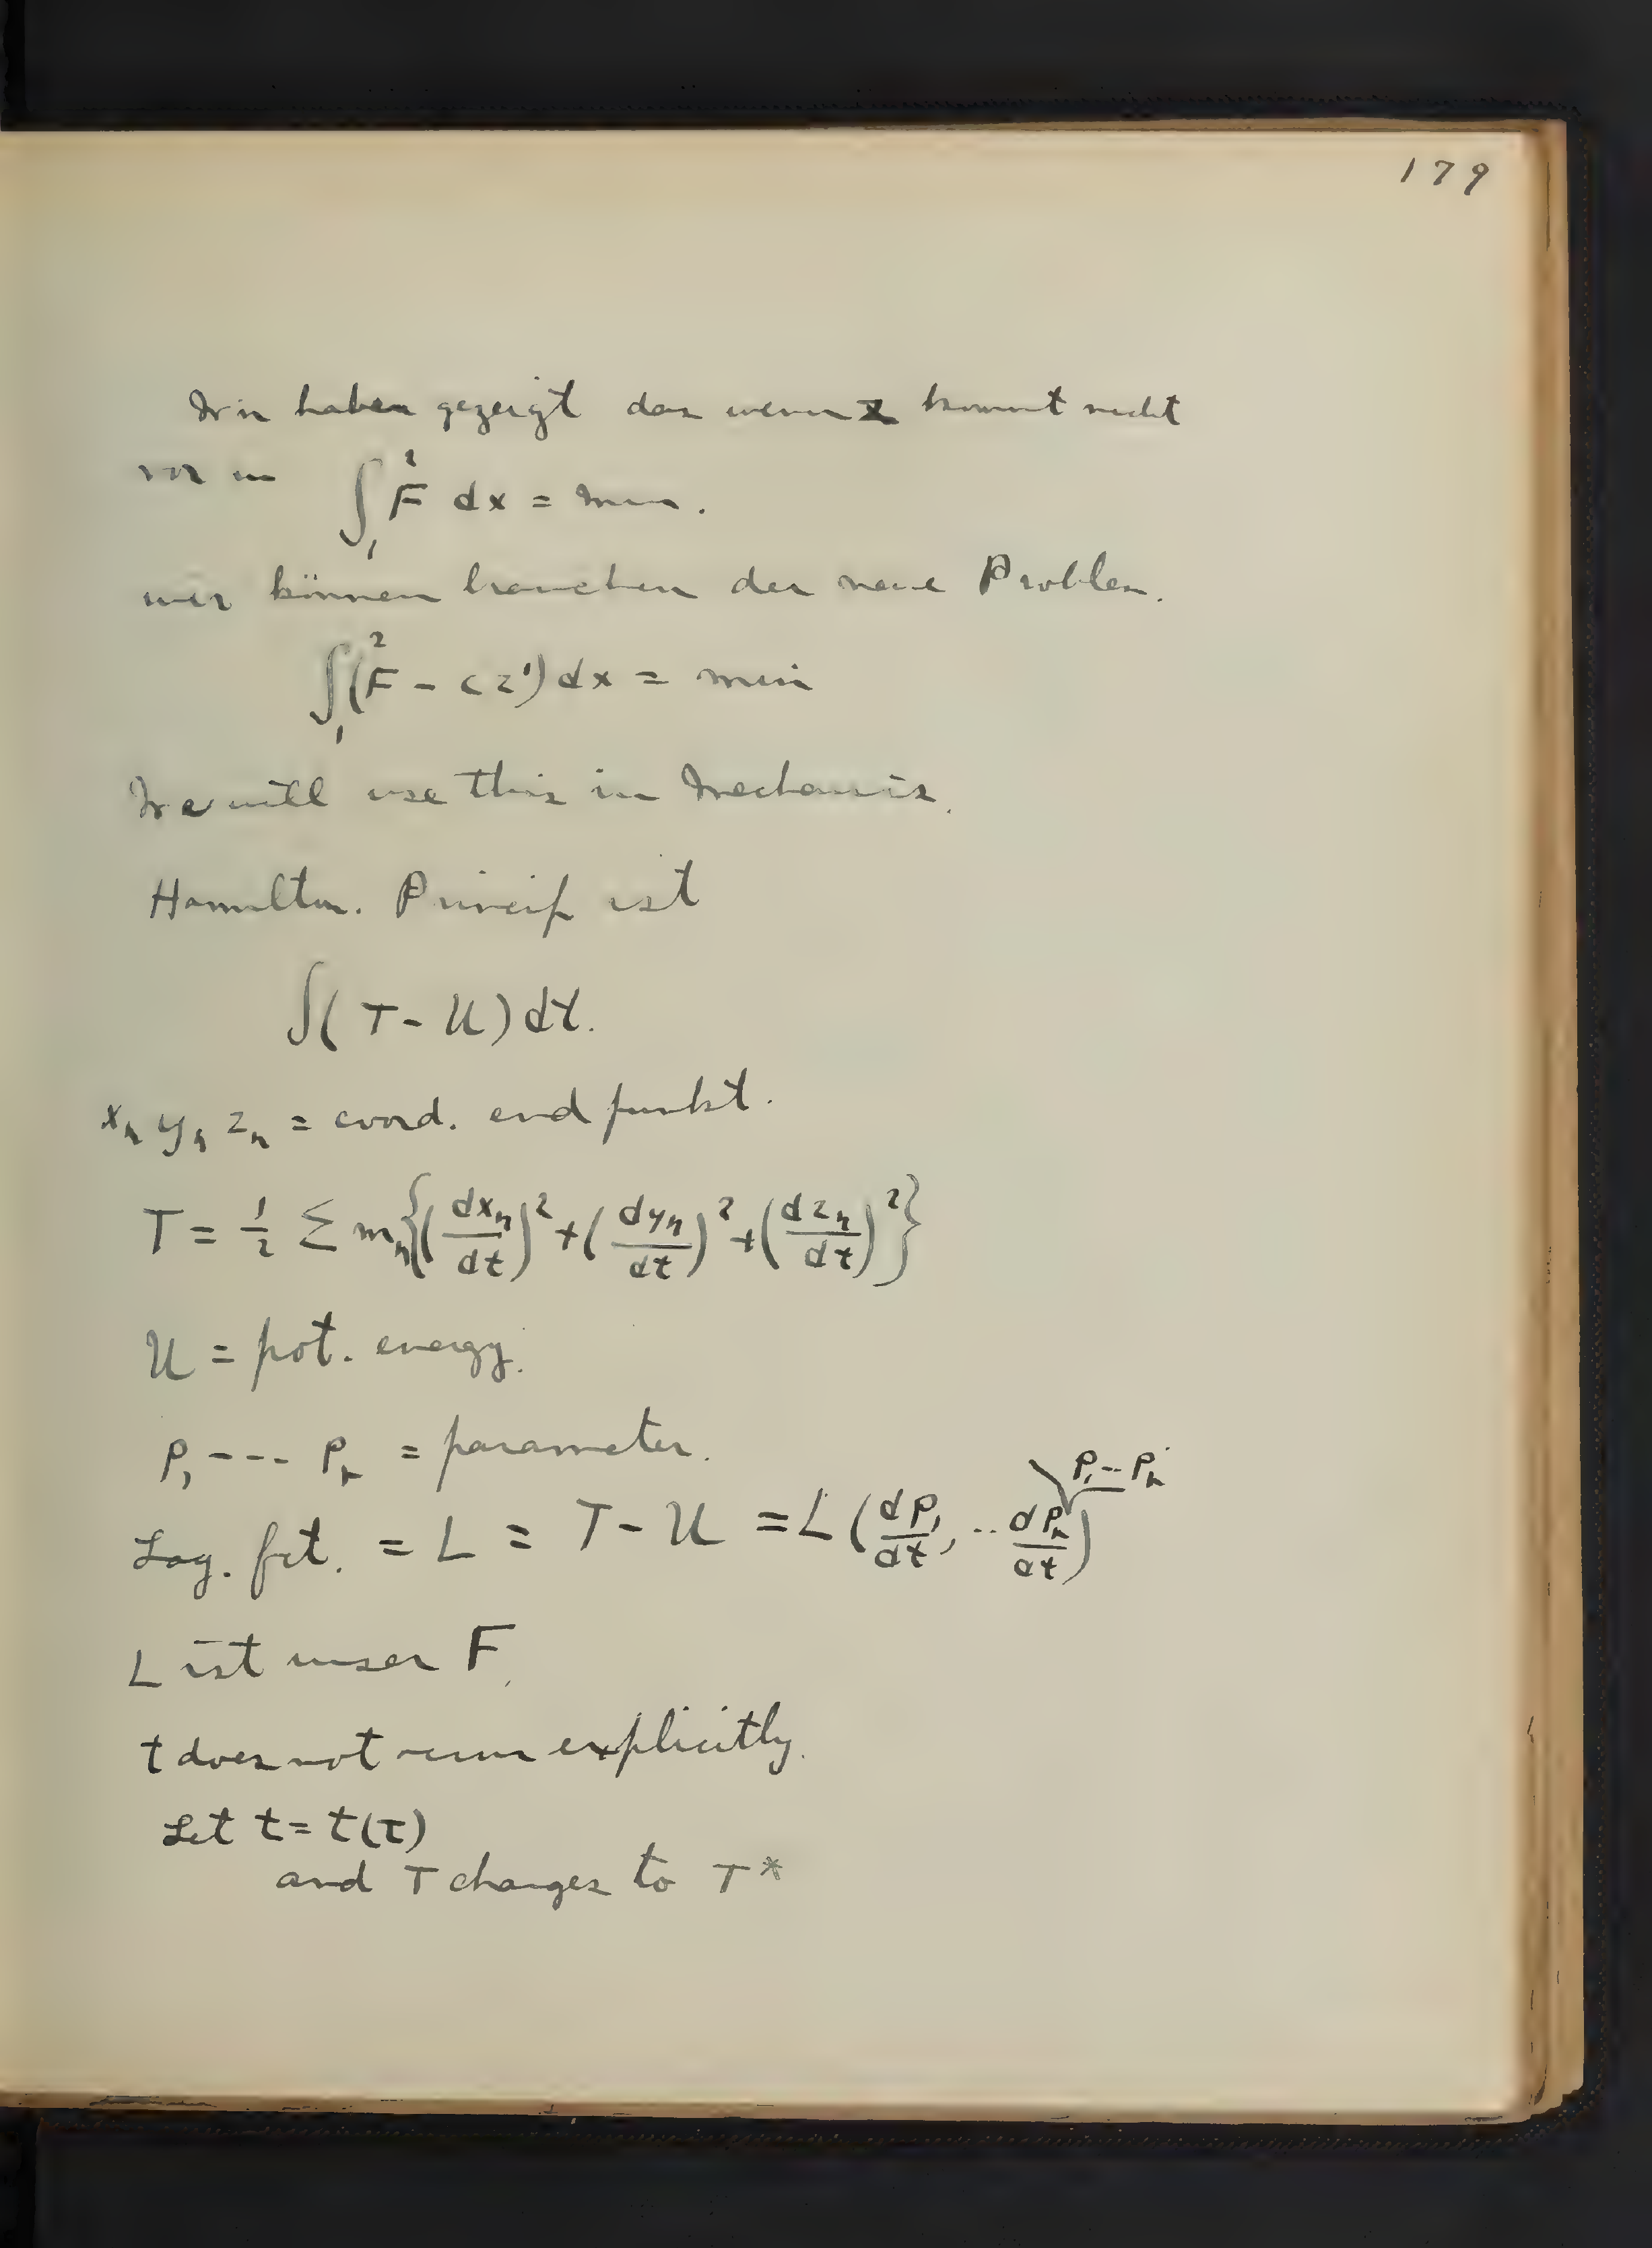 179
Wir haben gezeigt das wenn z kommt nicht
vor in ∫₁² F dx = min.
wir können brauchen der neue Problem.
∫₁² (F - cz') dx = min
We will use this in Mechanics.
Hamilton. Princip ist
∫( T - U ) dt.
xₕ yₕ zₕ = coord. end punkt.
T = 1/2 Σ mₕ {(dxₕ/dt)² + (dyₕ/dt)² + (dzₕ/dt)²}
U = pot. energy.
p₁ --- pₕ = parameter.
Lag. fct. = L = T - U = L (dp₁/dt, .. dpₕ/dt p₁ -- pₕ)
L ist unser F.
t does not occur explicitly.
Let t = t(τ)
and T changes to T*